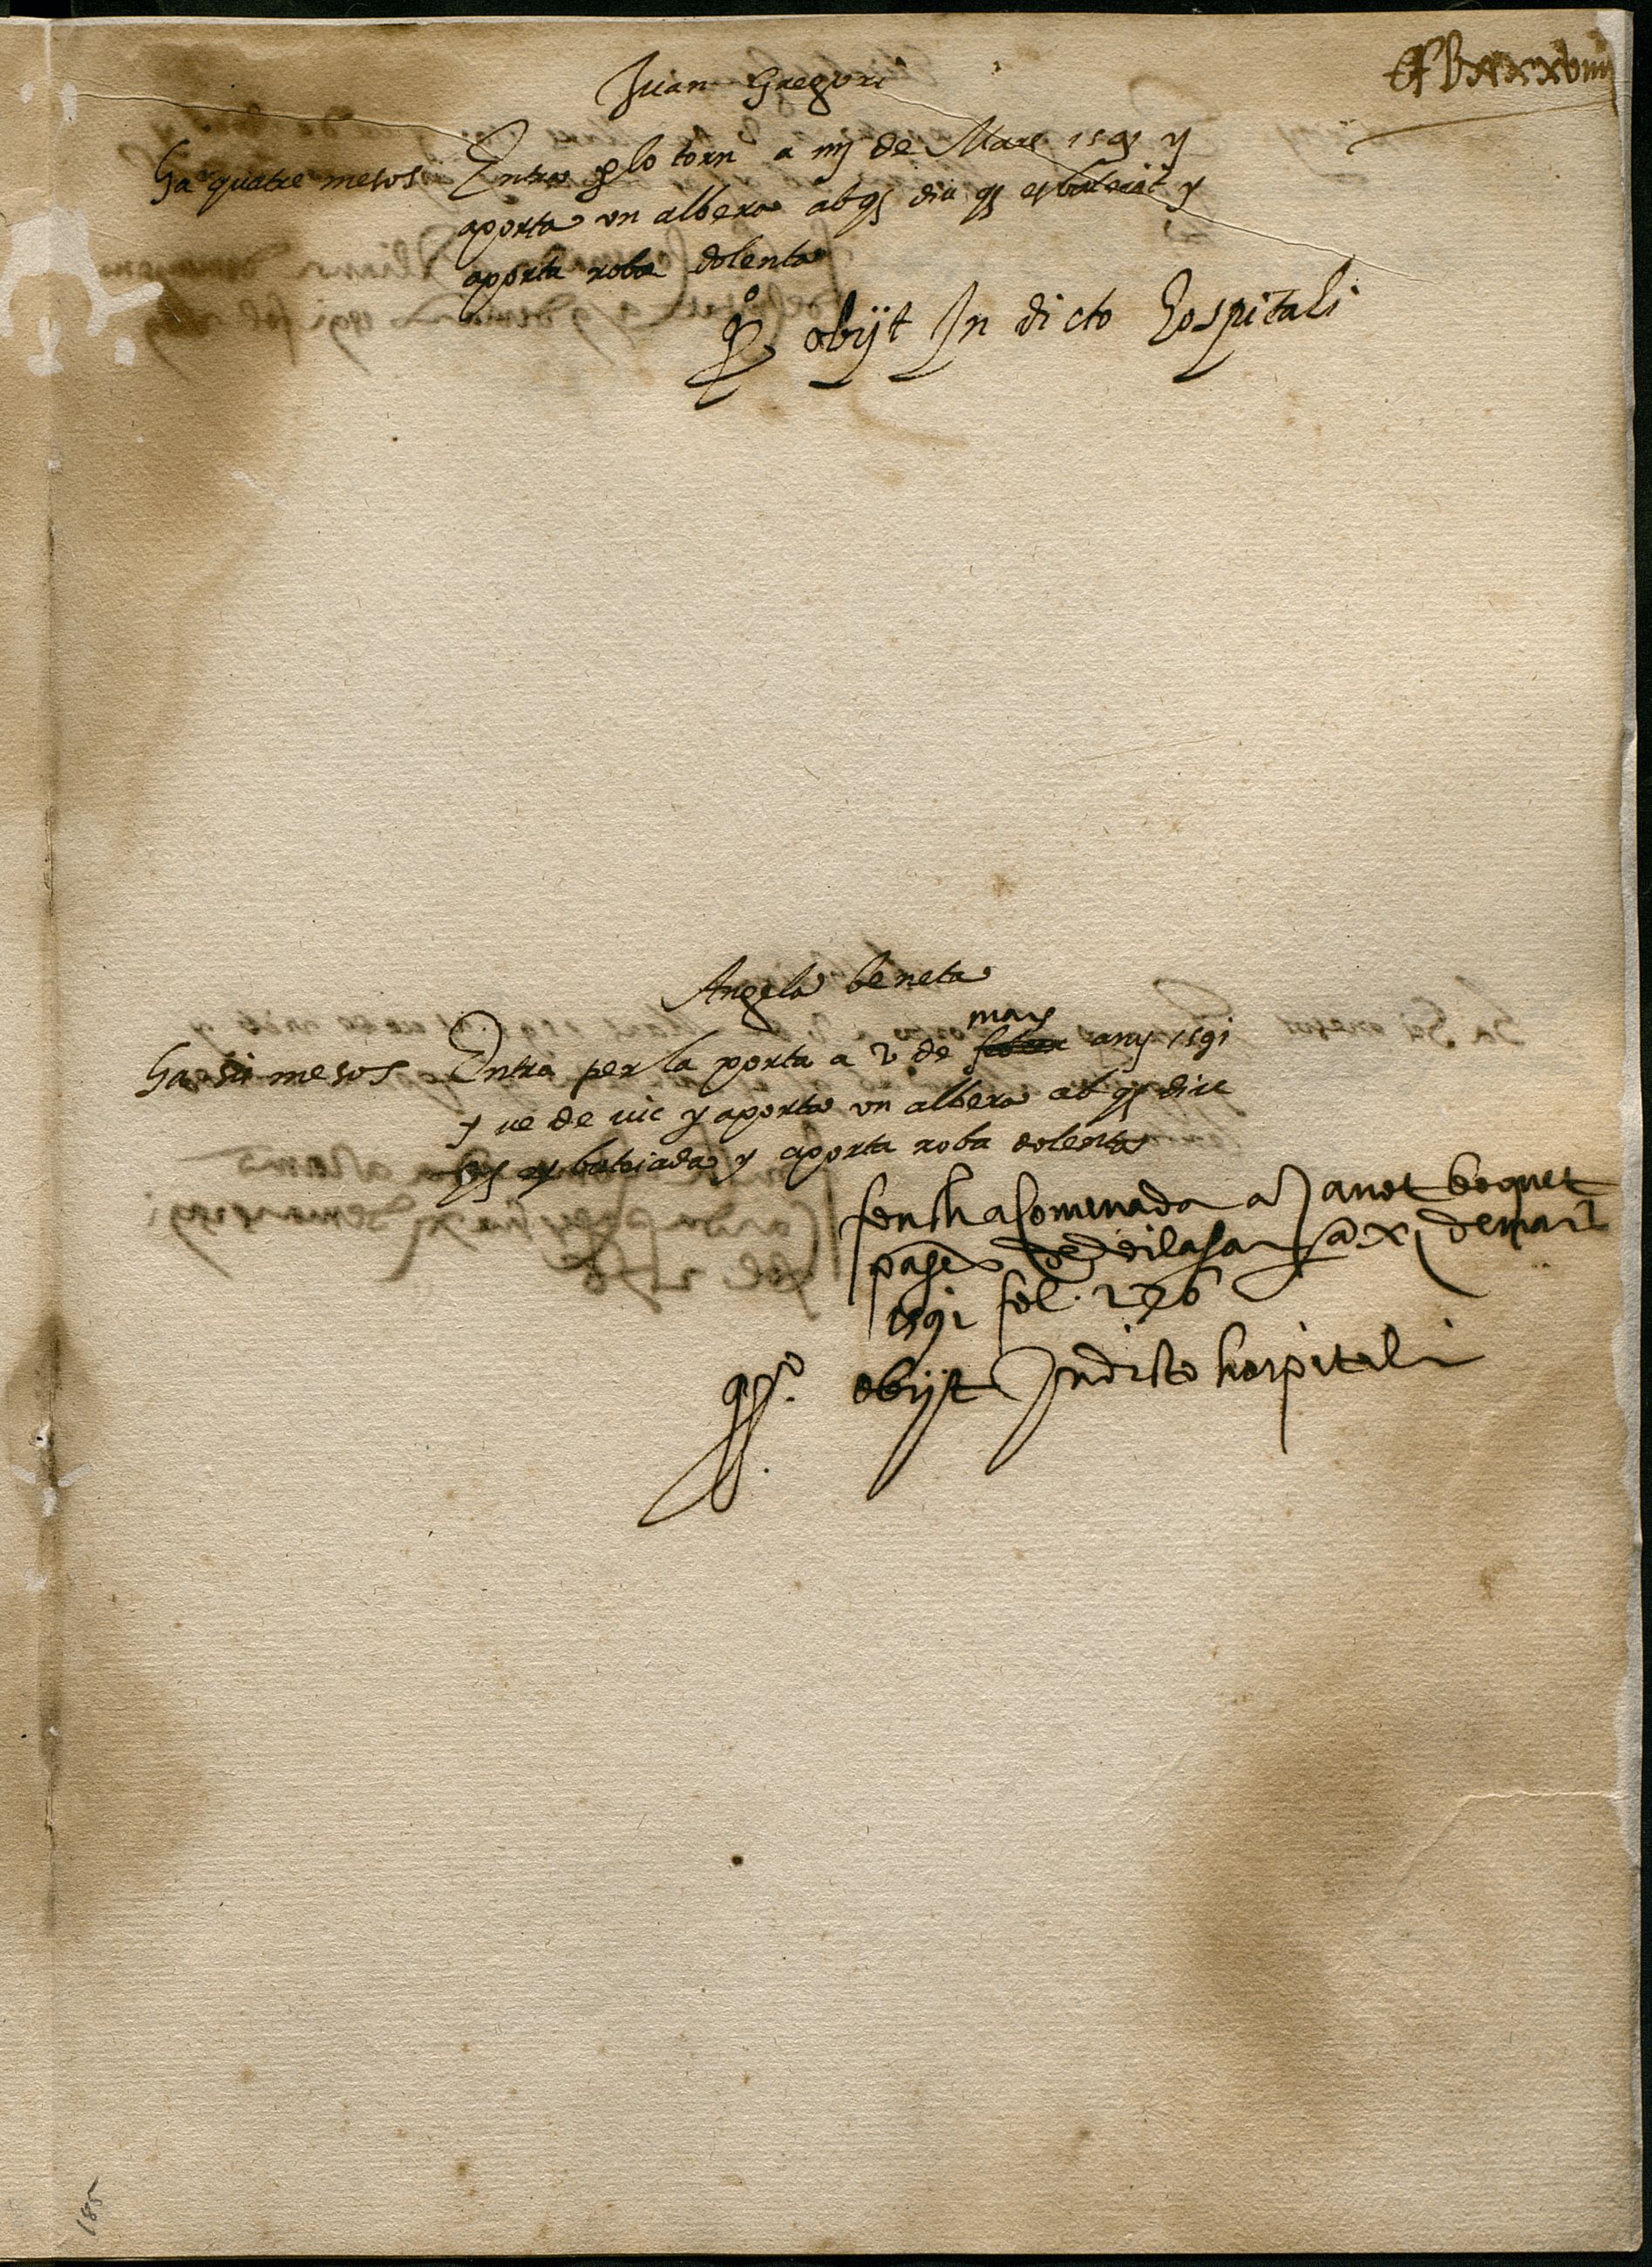 Juan Gregori
Ha quatre mesos Entra per lo torn a iiij de Mars 1591 y
aporta un albera ab q diu q es batejat y
aporta roba dolenta
obijt In dicto hospitali
Angela beneta
mars
Ha sis mesos Entra per la porta a v de any 1591
y ve de vic y aporta un albera ab q diu
q es batejada y aporta roba dolenta
fonch acomenada a Janot boquet
pages de a xj de mars
1591 fol. 276
obijt In dicto hospitali
185